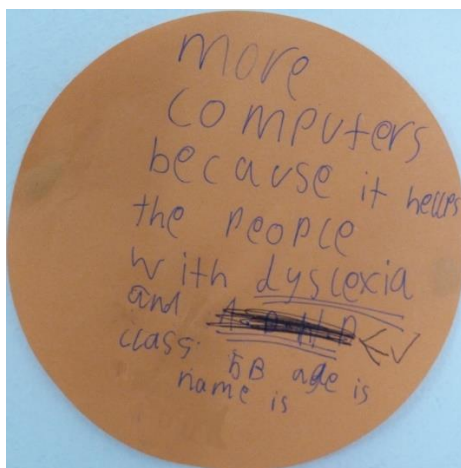 more
computers
because it helps
the people
with dyslexia
and
class 5B age is
name is